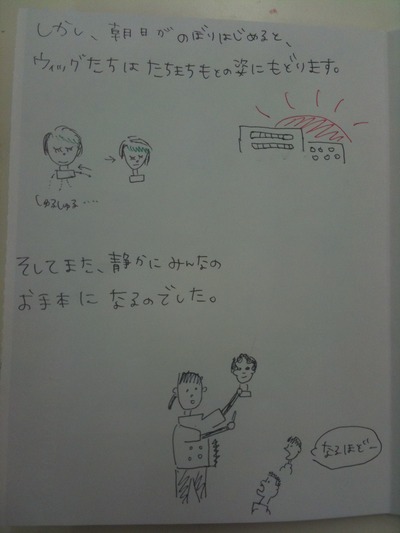 しかし、朝日が のぼりはじめると、
ウィッグたちは たちまち もとの姿にもどります。
しゅるしゅる‥‥
そしてまた、静かに みんなの
お手本に なるのでした。
なるほどー